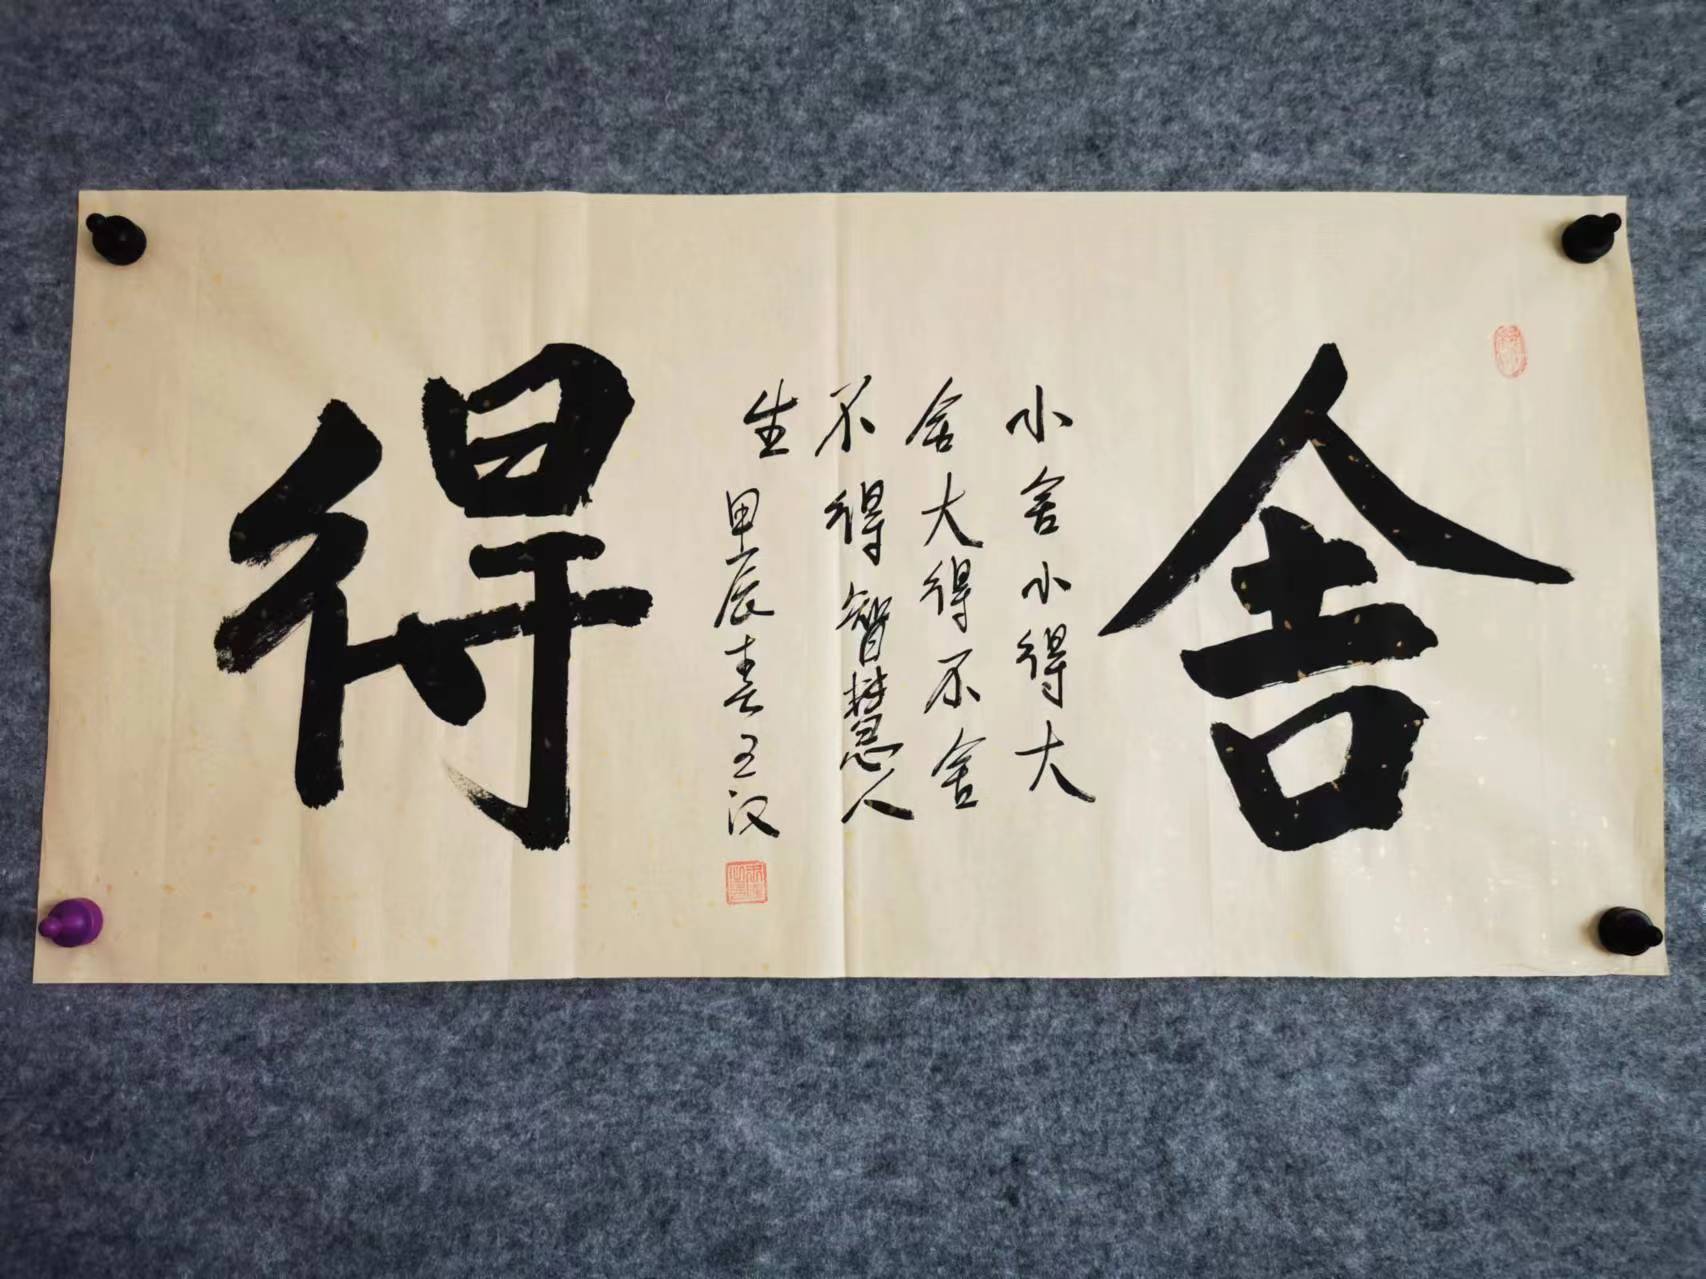 舍
小舍小得大
舍大得不舍
不得智慧人
生 甲辰春王汉
得